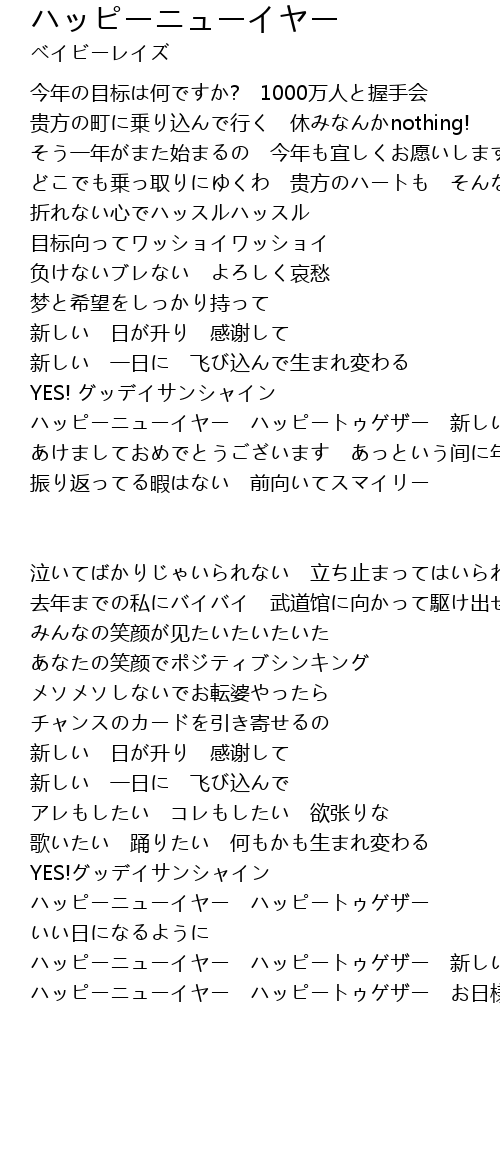 ハッピーニューイヤー
ベイビーレイズ
今年の目标は何ですか?　1000万人と握手会
贵方の町に乗り込んで行く　休みなんかnothing!
そう一年がまた始まるの　今年も宜しくお愿いします
どこでも乗っ取りにゆくわ　貴方のハートも　そんな
折れない心でハッスルハッスル
目标向ってワッショイワッショイ
负けないブレない　よろしく哀愁
梦と希望をしっかり持って
新しい　日が升り　感谢して
新しい　一日に　飞び込んで生まれ変わる
YES! グッデイサンシャイン
ハッピーニューイヤー　ハッピートゥゲザー　新しい
あけましておめでとうございます　あっという间に年
振り返ってる暇はない　前向いてスマイリー
泣いてばかりじゃいられない　立ち止まってはいられ
去年までの私にバイバイ　武道馆に向かって駆け出せ
みんなの笑顔が见たいたいたいた
あなたの笑顔でポジティブシンキング
メソメソしないでお転婆やったら
チャンスのカードを引き寄せるの
新しい　日が升り　感谢して
新しい　一日に　飞び込んで
アレもしたい　コレもしたい　欲张りな
歌いたい　踊りたい　何もかも生まれ変わる
YES!グッデイサンシャイン
ハッピーニューイヤー　ハッピートゥゲザー
いい日になるように
ハッピーニューイヤー　ハッピートゥゲザー　新しい
ハッピーニューイヤー　ハッピートゥゲザー　お日様